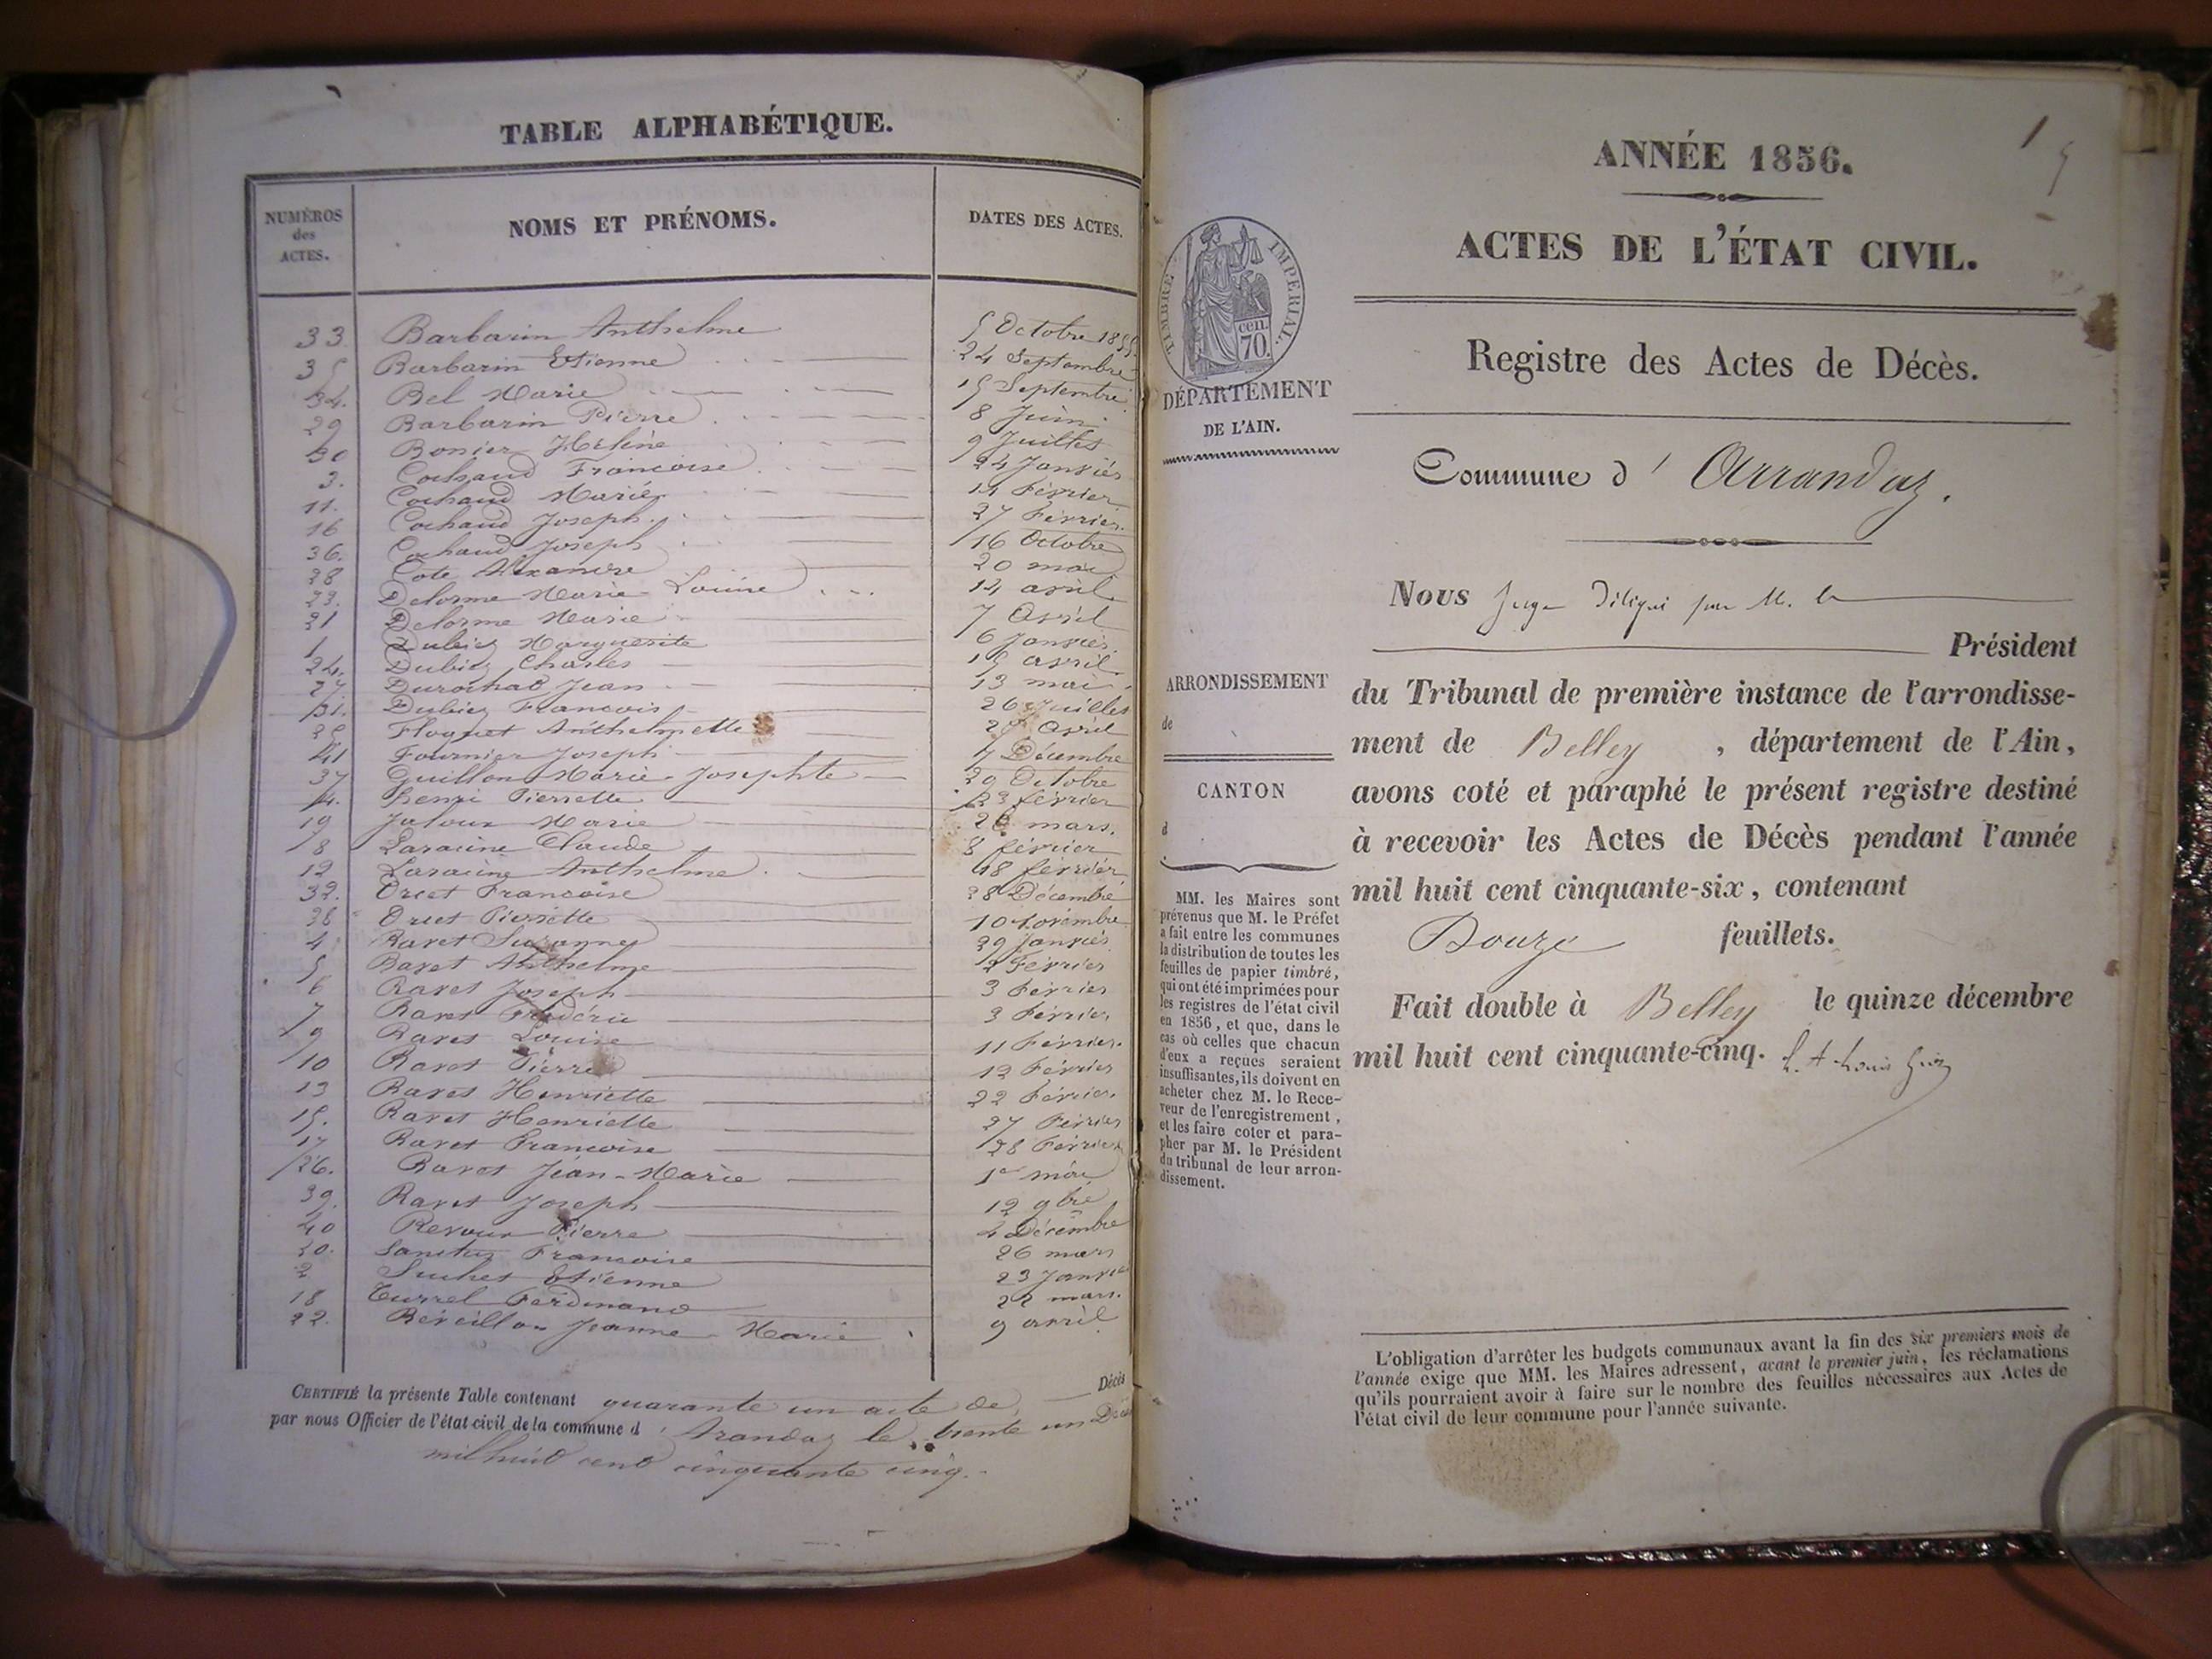 TABLE ALPHABÉTIQUE.
NUMÉROS
des
ACTES.
NOMS ET PRÉNOMS.
DATES DES ACTES.
33 Barbarin Anthelme 5 Octobre 1855
35 Barbarin Etienne 24 Septembre
34. Bel Marie 15 Septembre
29 Barbarin Pierre 8 Juin
30 Bonier Hélène 9 Juillet
3. Cochaud Francoise 24 Janvier
11. Cochaud Marie 14 Février
16 Cochaud Joseph 27 Février
36. Cochaud Joseph 16 Octobre
28 Cote Alexandre 20 mai
23. Delorme Marie Louise 14 avril
21 Delorme Marie 7 Avril
1 Dubiez Marguerite 6 Janvier
24. Dubiez Charles 15 avril
27. Durochat Jean 13 mai
31. Dubiez Francois 26 Juillet
25 Floquet Anthelmette avril
41 Fournier Joseph 4 Décembre
37 Guillon Marie-Josephte 29 Octobre
14. henri Pierrette 23 février
19 Jaloux Marie mars.
8 Laracine Claude 8 février
12 Laracine Anthelme 18 février
32. Orcet Francoise 28 Décembre
38 Orcet Pierrette 10 novembre
4 Ravet Suzanne 29 Janvier
5 Ravet Anthelme 2 Février
6 Ravet Joseph 3 Février
7 Ravet Frédéric 3 Février
9 Ravet Louise 11 Février
10 Ravet Pierre 12 Février
13 Ravet Henriette 22 Février
15. Ravet Henriette 27 Février
17 Ravet Francoise 28 Février
26. Ravet Jean-Marie 1er mai
39. Ravet Joseph 12 9bre
40 Revoux Pierre 4 Décembre
20. Sanctuz Francoise 26 mars
2 Suchet Etienne 23 Janvier
18 Turrel Ferdinand 22 mars.
22. Réveillon Jeanne-Marie 9 avril
CERTIFIÉ la présente Table contenant quarante un acte de Décès
par nous Officier de l'état civil de la commune d'Arandaz le trente un Décem
mil huit cent cinquante cinq.
1
ANNÉE 1856.
ACTES DE L'ÉTAT CIVIL.
TIMBRE IMPÉRIAL.
cen.
70.
DÉPARTEMENT
DE L'AIN.
Registre des Actes de Décès.
Commune d' Arrandaz.
Nous Juge délégué par M. le
Président
ARRONDISSEMENT
de
du Tribunal de première instance de l'arrondisse-
ment de Belley, département de l'Ain,
CANTON
d
avons coté et paraphé le présent registre destiné
à recevoir les Actes de Décès pendant l'année
mil huit cent cinquante-six, contenant
Douze feuillets.
Fait double à Belley le quinze décembre
mil huit cent cinquante-cinq.
MM. les Maires sont
prévenus que M. le Préfet
a fait entre les communes
la distribution de toutes les
feuilles de papier timbré,
qui ont été imprimées pour
les registres de l'état civil
en 1856, et que, dans le
cas où celles que chacun
d'eux a reçues seraient
insuffisantes, ils doivent en
acheter chez M. le Rece-
veur de l'enregistrement,
et les faire coter et para-
pher par M. le Président
du tribunal de leur arron-
dissement.
L'obligation d'arrêter les budgets communaux avant la fin des six premiers mois de
l'année exige que MM. les Maires adressent, avant le premier juin, les réclamations
qu'ils pourraient avoir à faire sur le nombre des feuilles nécessaires aux Actes de
l'état civil de leur commune pour l'année suivante.